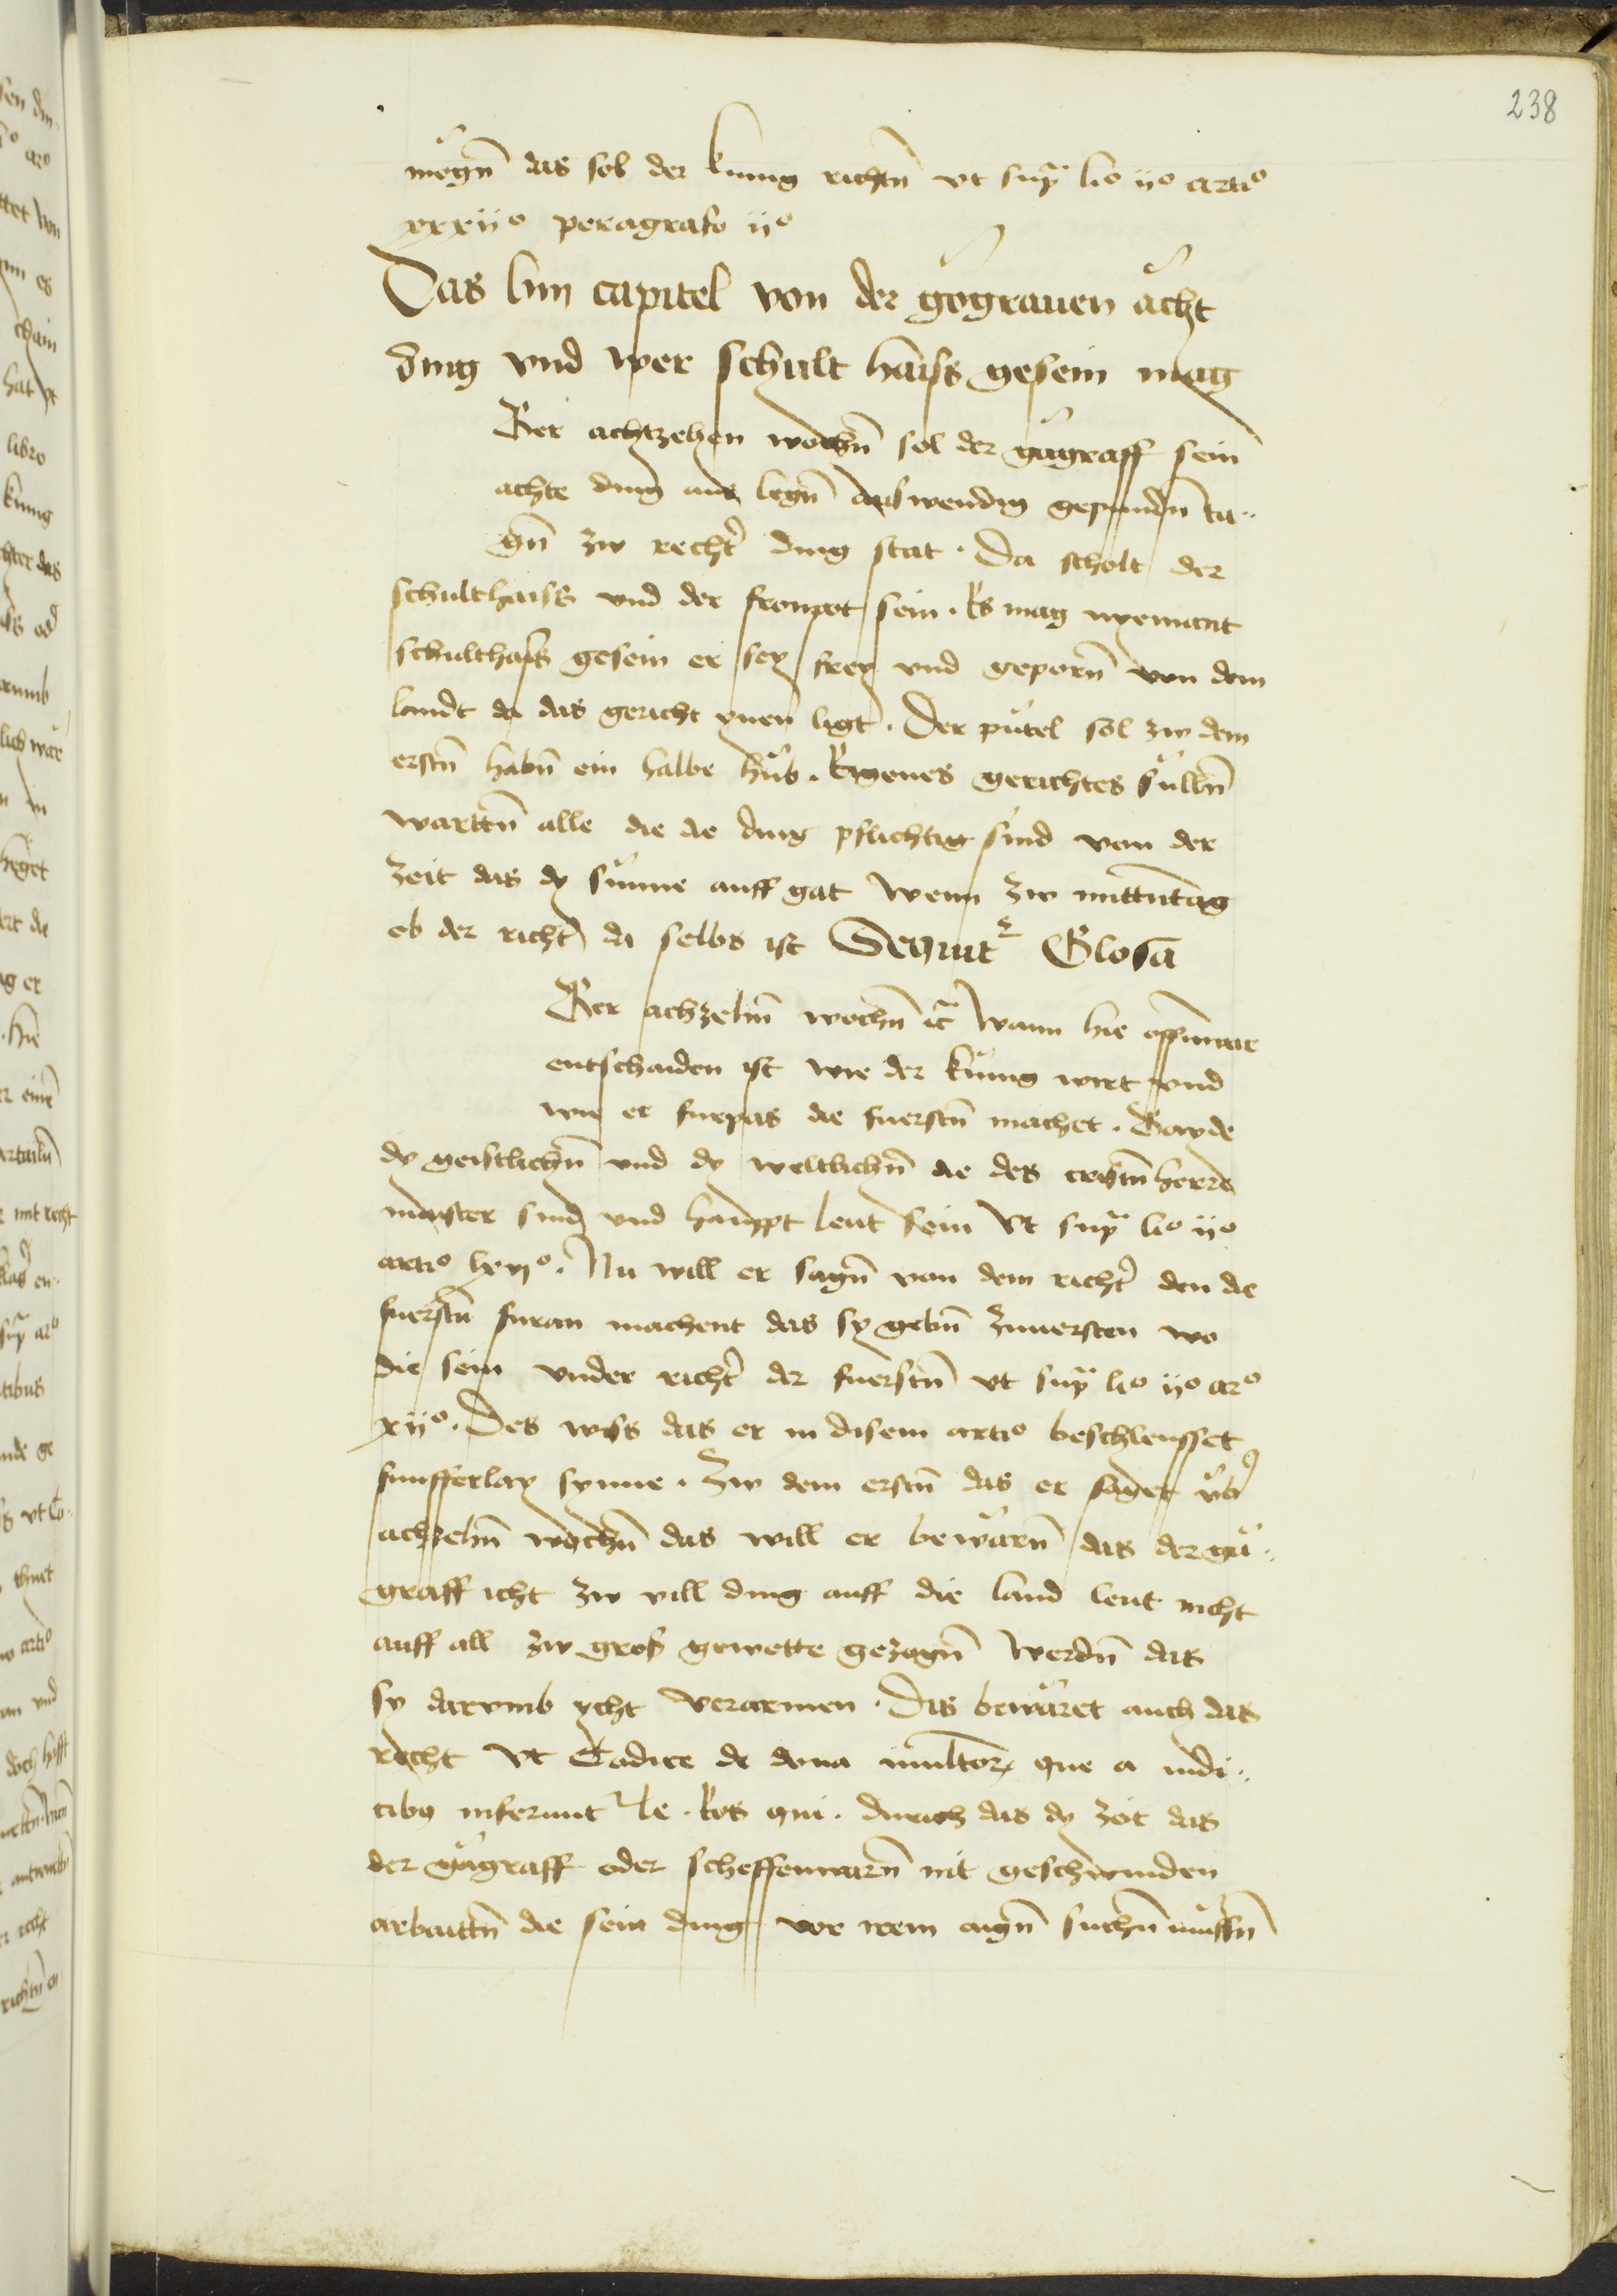 238
mögn̄ das sol der kunig richtn̄ vt supͣ liͦ ijͦ artiͦ
xxxiiͦ peragrafo ijͦ
Das lviij capitel von der gögrauen ächt
ding vnd wer schult haiss gesein mag
Ber achtzehen wochn̄ sol der gůgraff sein
achte ding aus legn̄ auswendig gepundn̄ ta¨
gn̄ zw recht̉ ding stat . Da scholt der
schulthaiss vnd der fronpot sein . Es mag nyemant
schulthaiss gesein er sey frey vnd geporn̄ von dem
landt da das gericht ynen ligt . Der putel sol zw dem
erstn̄ habn̄ ein halbe hůb . Eigenes gerichtes sůlln̄
warttn̄ alle die die ding pflichtig sind von der
zeit das dy sunne auff gat wenn zw mittn̄tag
ob der richt̉ da selbs ist Sequit² Glosā
Ber achzehn̄ wochn̄ ꝛc̄ Wann hie offenwar
entschaiden ist wie der kunig wirt vnd
wie er furpas die fuerstn̄ machet . Bayde
dy geistlichn̄ vnd dy weltlichn̄ die des cristn̄ herrn̄
maister sind vnd haüppt leut sein Vt supͣ liͦ ijͦ
artiͦ lxvjͦ . Nu will er sagn̄ von dem richt̉ den die
fuerstn̄ furan machent das sy gebn̄ zuuersten wo
die sein vnder richt̉ der fuerstn̄ vt supͣ liͦ ijͦ arͦ
xiiͦ . Des wiss das er in disem artiͦ beschleusset
funfferlay synne . Zw dem erstn̄ das er saget vb̉
achzehn̄ wochn̄ das will er bewarn̄ das der gů¨
graff icht zw vill ding auff die land leut nicht
auff all zw gros gewette gezogn̄ werdn̄ das
sy darvmb ycht verarmen . Das bewäret auch das
recht Vt Codice de dona multorꝝ que a iudi¨
cibꝰ inferunt² le . Eos qui . durich das dy zeit das
der gůgraff oder scheffenwarn̄ mit geschwinden
arbaittn̄ die sein ding vor irem aign̄ suchn̄ mussn̄